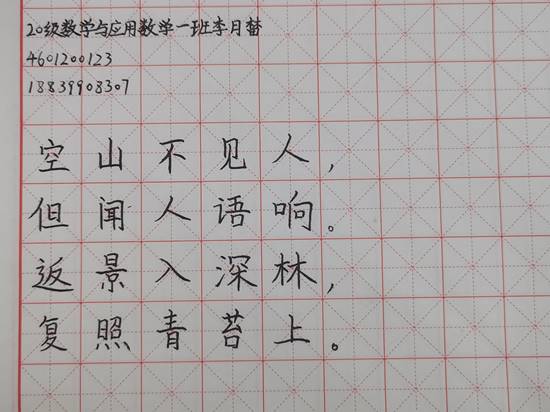 20级数学与应用数学一班李月替
4601200123
18839908307
空山不见人，
但闻人语响。
返景入深林，
复照青苔上。